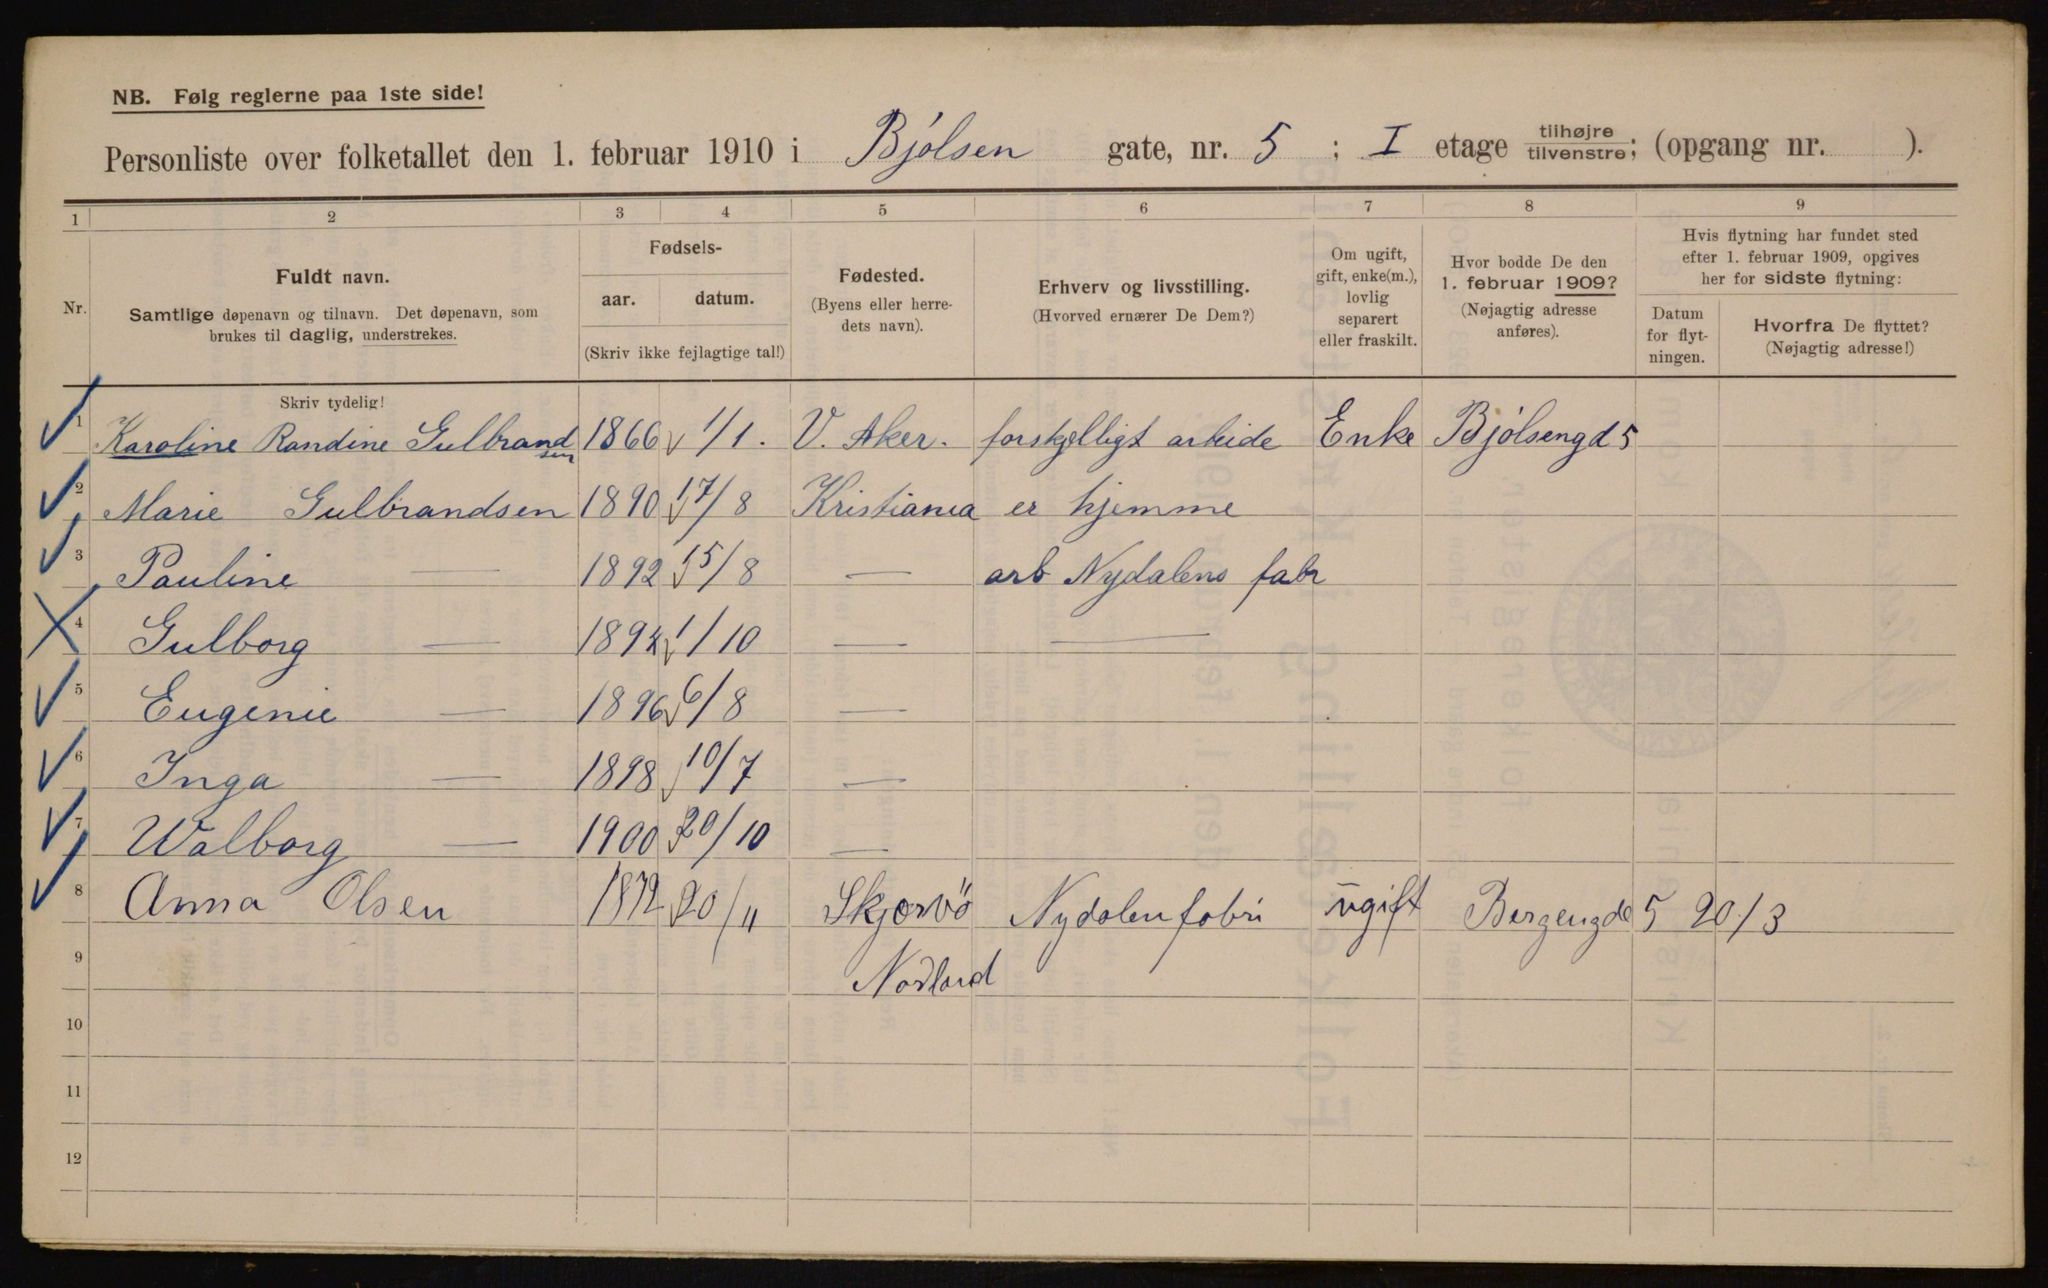 NB. Følg reglerne paa 1ste side!
Personliste over folketallet den 1. februar 1910 i Bjölsen gate, nr. 5 ; I etage tilhøjre tilvenstre; (opgang nr. ).
1 2 3 4 5 6 7 8 9
Nr.
Fuldt navn.
Samtlige døpenavn og tilnavn. Det døpenavn, som
brukes til daglig, understrekes.
Fødsels-
aar. datum.
(Skriv ikke fejlagtige tal!)
Fødested.
(Byens eller herre-
dets navn).
Erhverv og livsstilling.
(Hvorved ernærer De Dem?)
Om ugift,
gift, enke(m.),
lovlig
separert
eller fraskilt.
Hvor bodde De den
1. februar 1909?
(Nøjagtig adresse
anføres).
Hvis flytning har fundet sted
efter 1. februar 1909, opgives
her for sidste flytning:
Datum
for flyt-
ningen.
Hvorfra De flyttet?
(Nøjagtig adresse!)
Skriv tydelig!
1 Karoline Randine Gulbrandsen 1866 1/1. V. Aker. forskjelligt arbeide Enke Bjölsengd 5
2 Marie Gulbrandsen 1890 17/8 Kristiania er hjemme
3 Pauline — 1892 15/8 — arb Nydalens fabr
4 Gulborg — 1894 1/10 — —
5 Eugenie — 1896 6/8 —
6 Inga — 1898 10/7 —
7 Walborg — 1900 20/10 —
8 Anna Olsen 1872 20/11 Skjærvö Nydalen fabri ugift Bergengde 5 20/3
9 Nordland
10
11
12